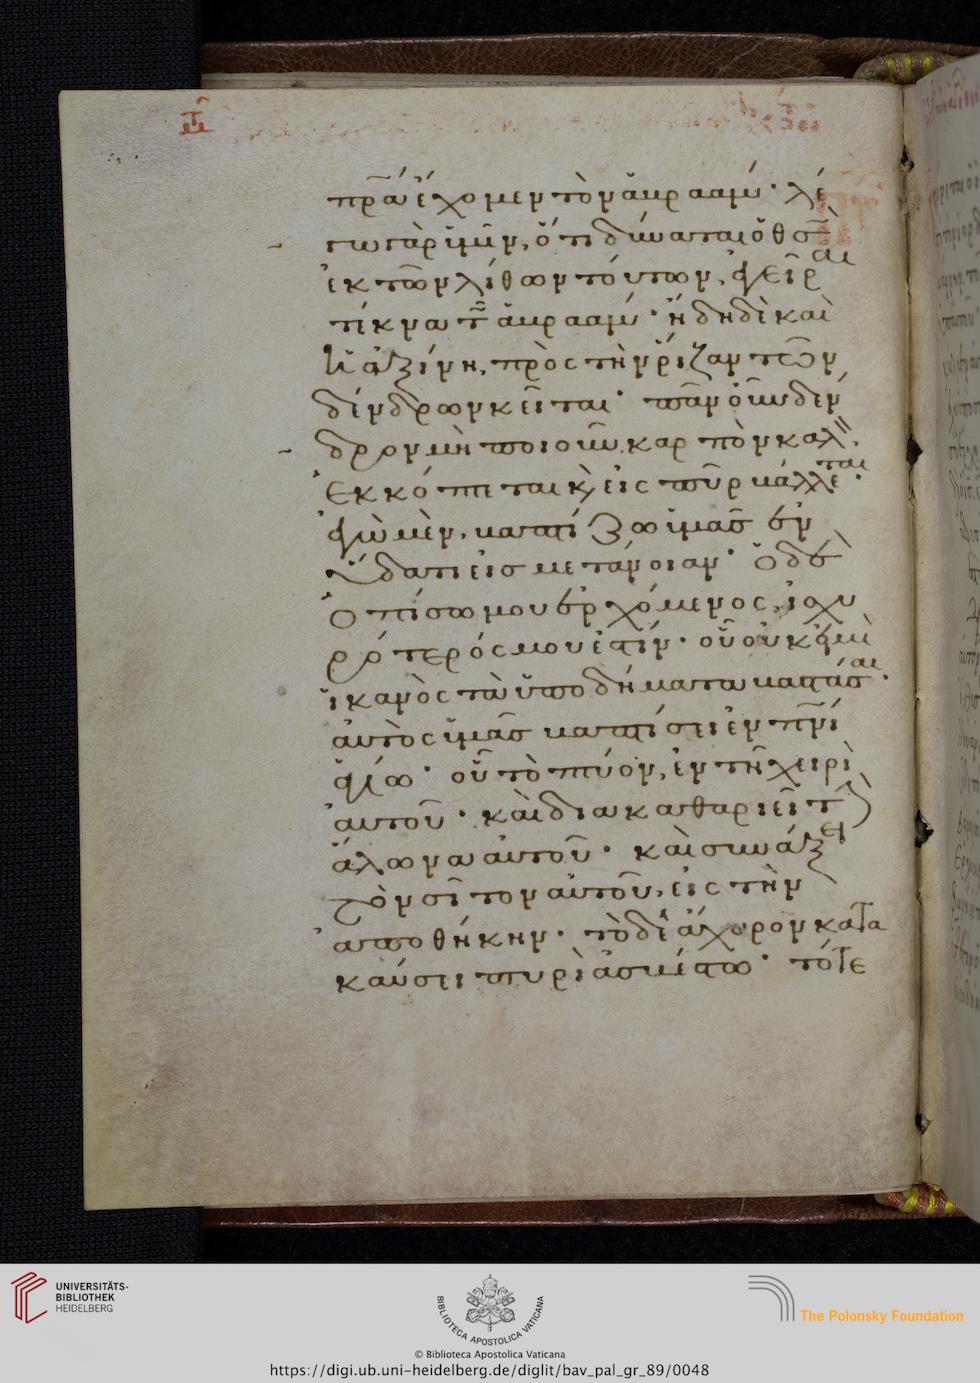 πρ̅α ἔχομεν τὸν ἀβρααμ· λέ
γω γὰρ ὑμῖν, ὅτι δύναται ὁ θσ̅
ἐκ τῶν λίθων τούτων, ἐγεῖραι
τέκνα τῶ ἀβρααμ· ἤδη δὲ καὶ
ἡ ἀξίνη, πρὸς τὴν ῥίζαν τῶν
δένδρων κεῖται· πᾶν οὖν δέν
δρον μὴ ποιοῦν καρπὸν καλ,
ἐκκόπτεται κ εἰς πῦρ βάλλεται·
ἐγὼ μὲν, βαπτίζω ὑμᾶσ ἐν
ὕδατι εἰσ μετάνοιαν· ὁ δὲ
ὀπίσω μου ἐρχόμενος, ἰσχυ
ρότερός μου ἐστίν· οὗ οὐκ εἰμὶ
ἱκανὸς τὰ ὑποδήματα βαστάσαι·
αὐτὸς ὑμᾶσ βαπτίσει ἐν πν̅ι
ἁγίω· οὗ τὸ πτύον, ἐν τῆ χειρὶ
αὐτοῦ· καὶ διακαθαριεῖ τ
ἅλωνα αὐτοῦ· καὶ συνάξει
τὸν σῖτον αὐτοῦ, εἰς τὴν
ἀποθήκην· τὸ δὲ ἄχυρον κατα
καύσει πυρὶ ἀσβέστω· τότε
UNIVERSITÄTS-
BIBLIOTHEK
HEIDELBERG
BIBLIOTECA APOSTOLICA VATICANA
The Polonsky Foundation
© Biblioteca Apostolica Vaticana
https://digi.ub.uni-heidelberg.de/diglit/bav_pal_gr_89/0048